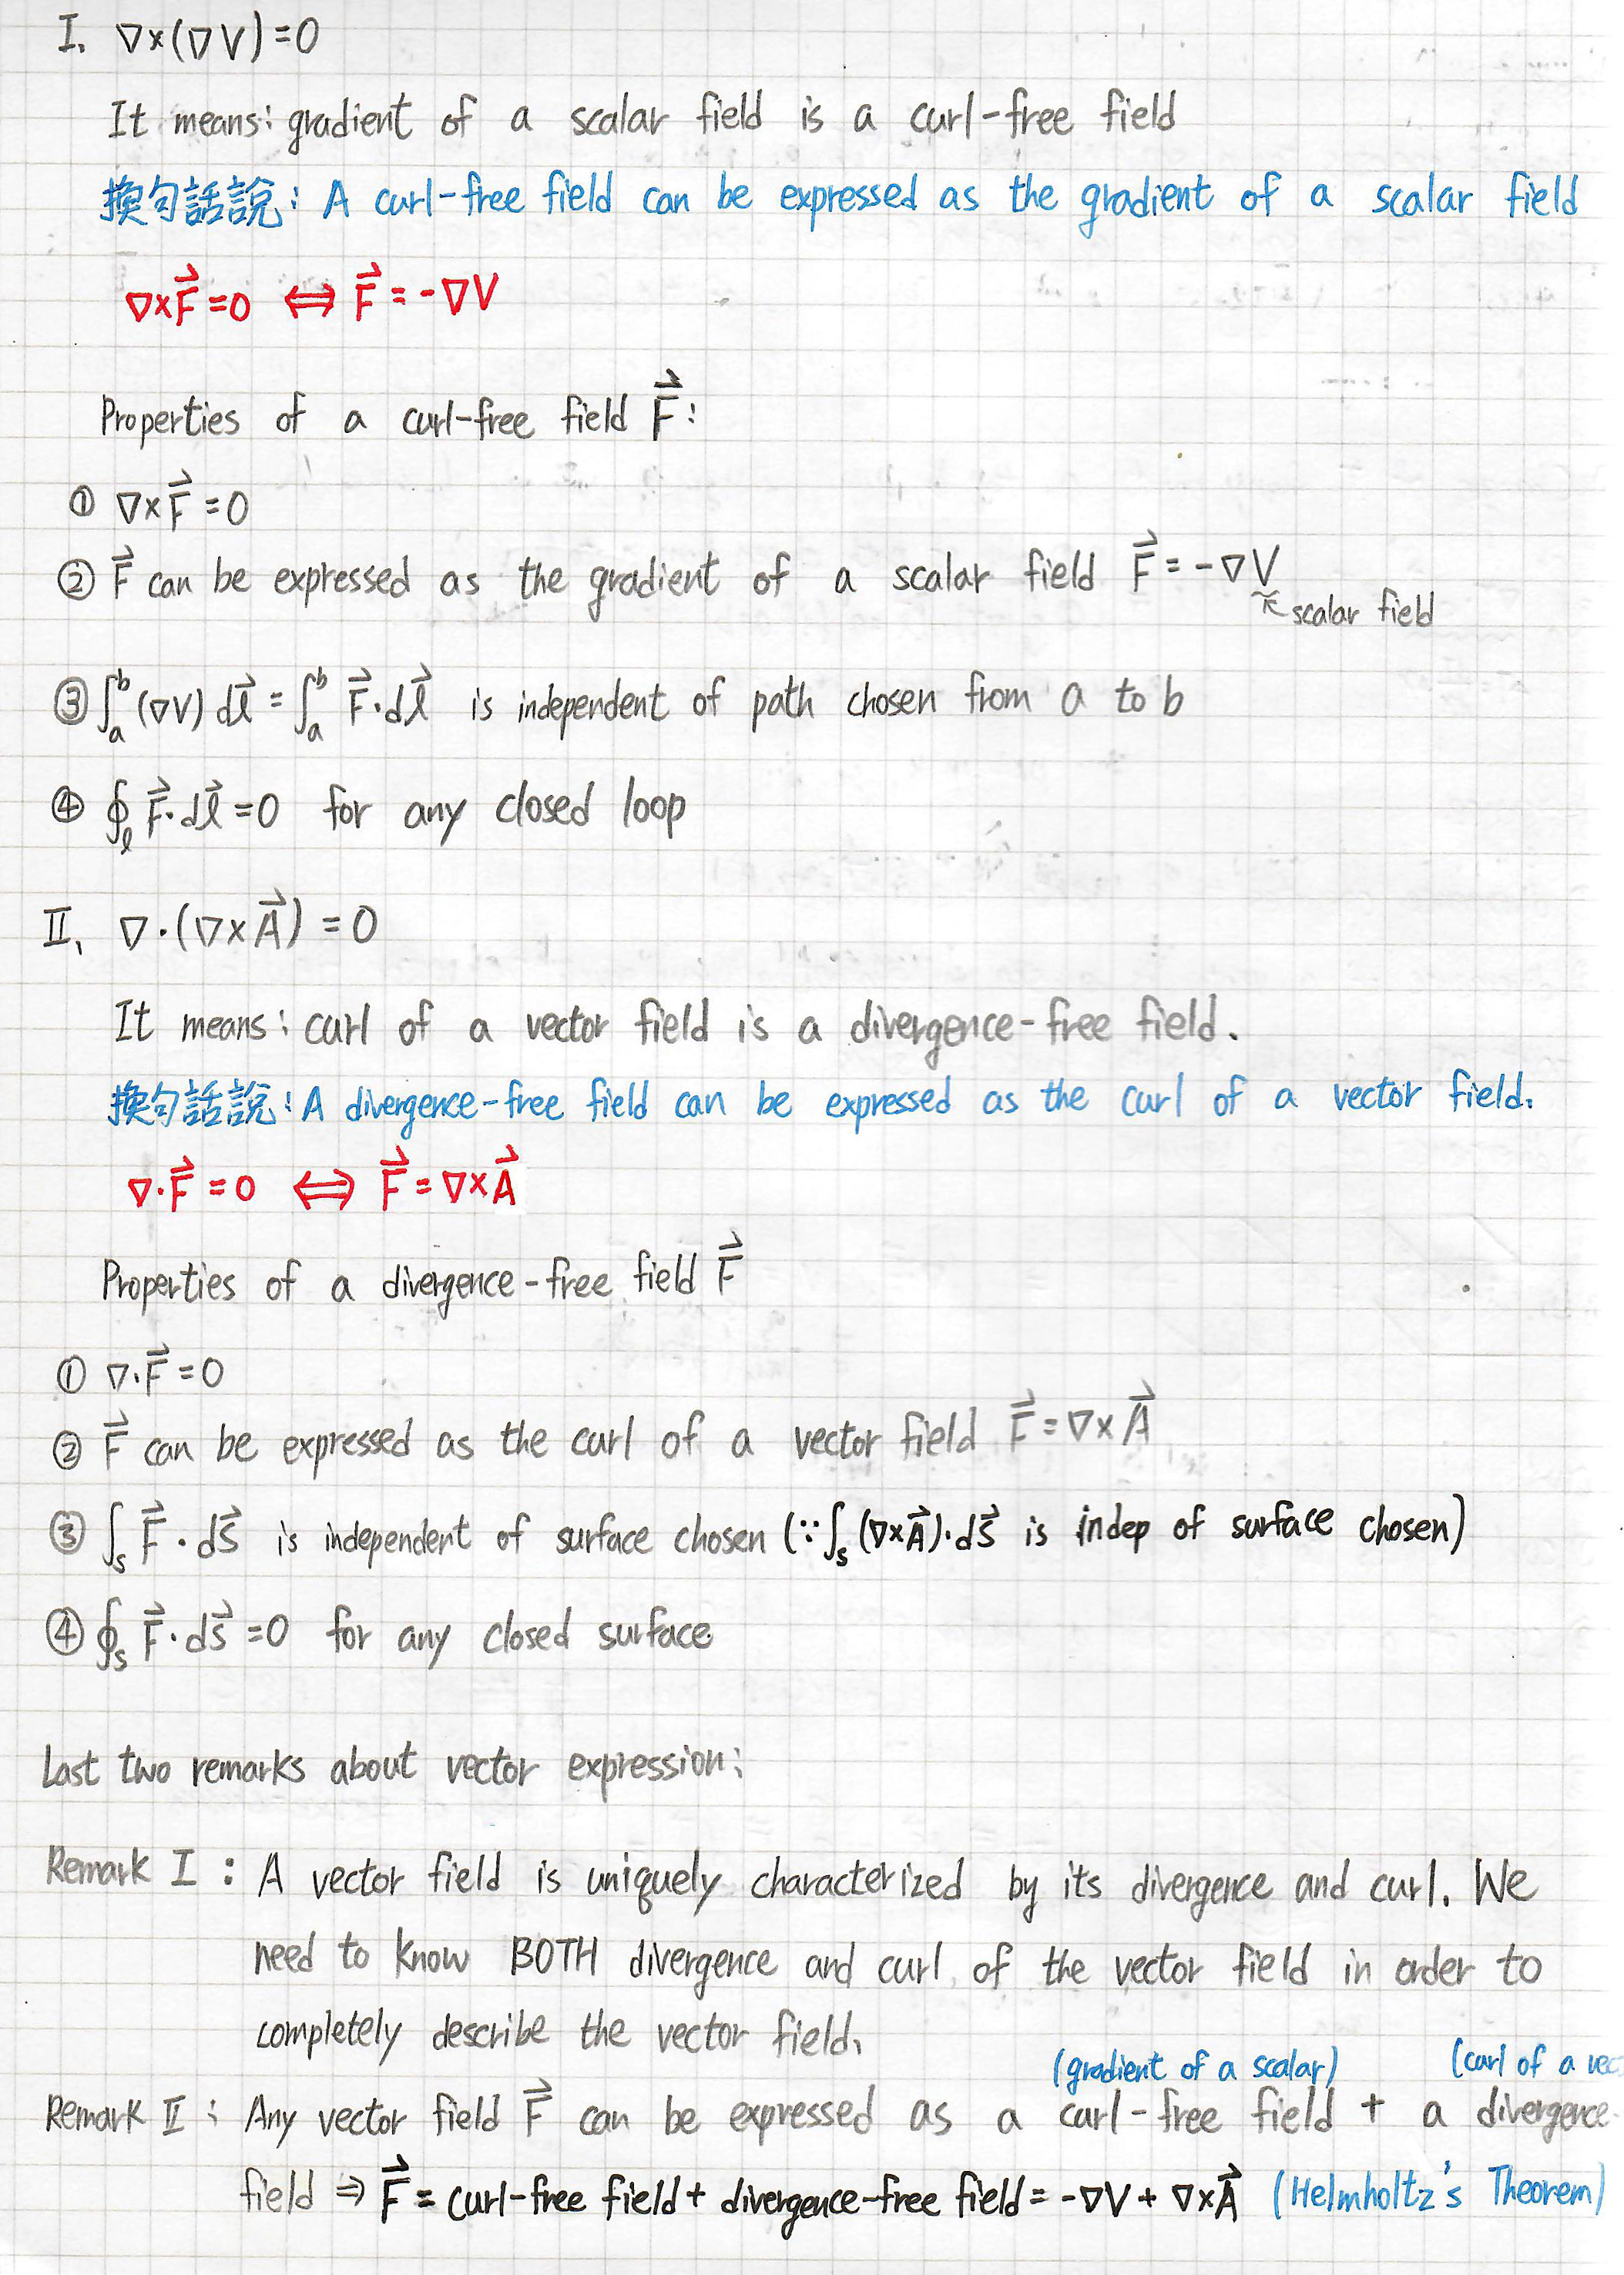 I. ∇×(∇V)=0
It means: gradient of a scalar field is a curl-free field
換句話說: A curl-free field can be expressed as the gradient of a scalar field
∇×F⃗=0 ⇔ F⃗=-∇V
Properties of a curl-free field F⃗:
① ∇×F⃗=0
② F⃗ can be expressed as the gradient of a scalar field F⃗=-∇V
↖ scalar field
③ ∫ₐᵇ(∇V)dl⃗=∫ₐᵇ F⃗·dl⃗ is independent of path chosen from a to b
④ ∮ₗ F⃗·dl⃗=0 for any closed loop
II. ∇·(∇×A⃗)=0
It means: curl of a vector field is a divergence-free field.
換句話說: A divergence-free field can be expressed as the curl of a vector field.
∇·F⃗=0 ⇔ F⃗=∇×A⃗
Properties of a divergence-free field F⃗
① ∇·F⃗=0
② F⃗ can be expressed as the curl of a vector field F⃗=∇×A⃗
③ ∫ₛ F⃗·ds⃗ is independent of surface chosen (∵∫ₛ(∇×A⃗)·ds⃗ is indep of surface chosen)
④ ∮ₛ F⃗·ds⃗=0 for any closed surface
Last two remarks about vector expression:
Remark I: A vector field is uniquely characterized by its divergence and curl. We
need to know BOTH divergence and curl of the vector field in order to
completely describe the vector field.
(gradient of a scalar) (curl of a vec
Remark II: Any vector field F⃗ can be expressed as a curl-free field + a divergence-
field ⇒ F⃗ = curl-free field + divergence-free field = -∇V + ∇×A⃗ (Helmholtz's Theorem)